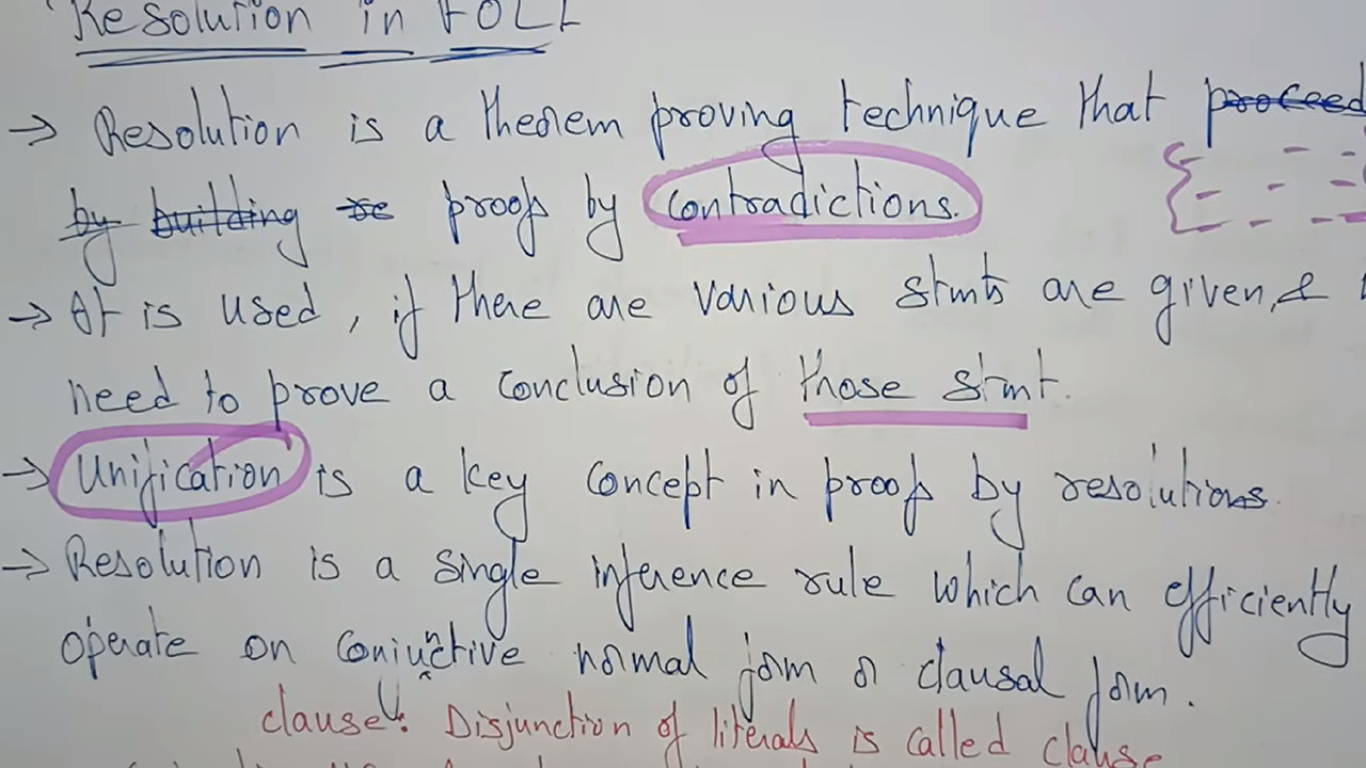 Resolution in FOLL
→ Resolution is a theorem proving technique that proceed
by building re proof by contradictions.
→ It is used, if there are various stmts are given, &
need to prove a conclusion of those stmt.
→ Unification is a key concept in proof by resolutions.
→ Resolution is a single inference rule which can efficiently
operate on conjunctive normal form or clausal form.
clause: Disjunction of literals is called clause